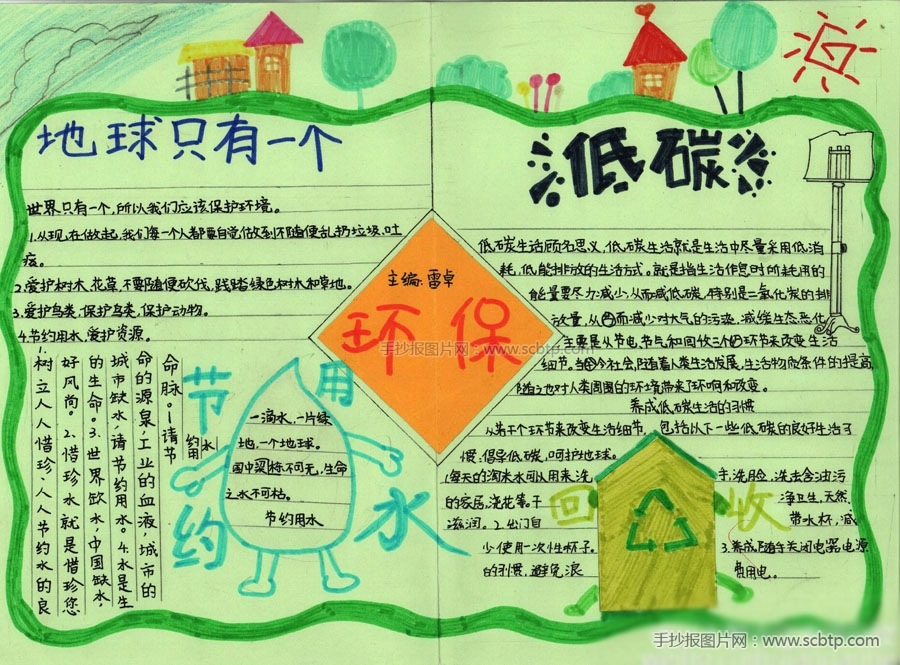 地球只有一个
世界只有一个，所以我们应该保护环境。
1.从现在做起，我们每一个人都要自觉做到不随便乱扔垃圾、吐
痰。
2.爱护树木、花草，不要随便砍伐，践踏绿色树木和草地。
3.爱护鸟类，保护鸟类，保护动物。
4.节约用水，爱护资源。
1.树立人人惜珍、人人节约水的良
好风尚。2.惜珍水就是惜珍您
的生命。3.世界缺水，中国缺水，
城市缺水，请节约用水。4.水是生
命的源泉，工业的血液，城市的
命脉。请节
约用水
节约用水
一滴水，一片绿
地，一个地球。
国中栋梁不可无，生命
之水不可枯。
节约用水
主编：雷卓
环保
手抄报图片网：www.scbtp.com
低碳
低碳生活顾名思义，低碳生活就是生活中尽量采用低消
耗，低能排放的生活方式。就是指生活作息时所耗用的
能量要尽力减少，从而减低碳，特别是二氧化炭的排
放量，从而减少对大气的污染，减缓生态恶化
主要是从节电节气和回收三个环节来改变生活
细节。当今社会，随着人类生活发展，生活物质条件的提高，
随之也对人类周围的环境带来了环响和改变。
养成低碳生活的习惯
从若干个环节来改变生活细节，包括以下一些低碳的良好生活习
惯，倡导低碳，呵护地球。
1.每天的淘米水可以用来洗手、洗脸、洗去含油污
的家居，浇花等。干净卫生，天然
滋润。2.出门自带水杯，减
少使用一次性杯子。3.养成随手关闭电器电源
的习惯，避免浪费用电。
回收
手抄报图片网：www.scbtp.com